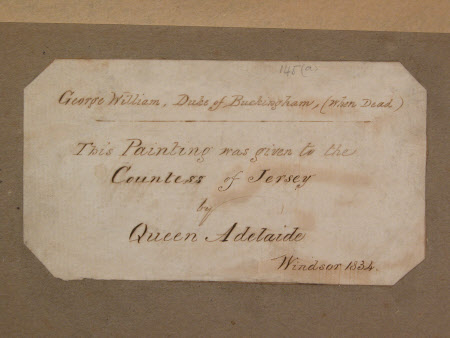 145(a)
George William, Duke of Buckingham, (When Dead)
This Painting was given to the
Countess of Jersey
by
Queen Adelaide
Windsor 1834.